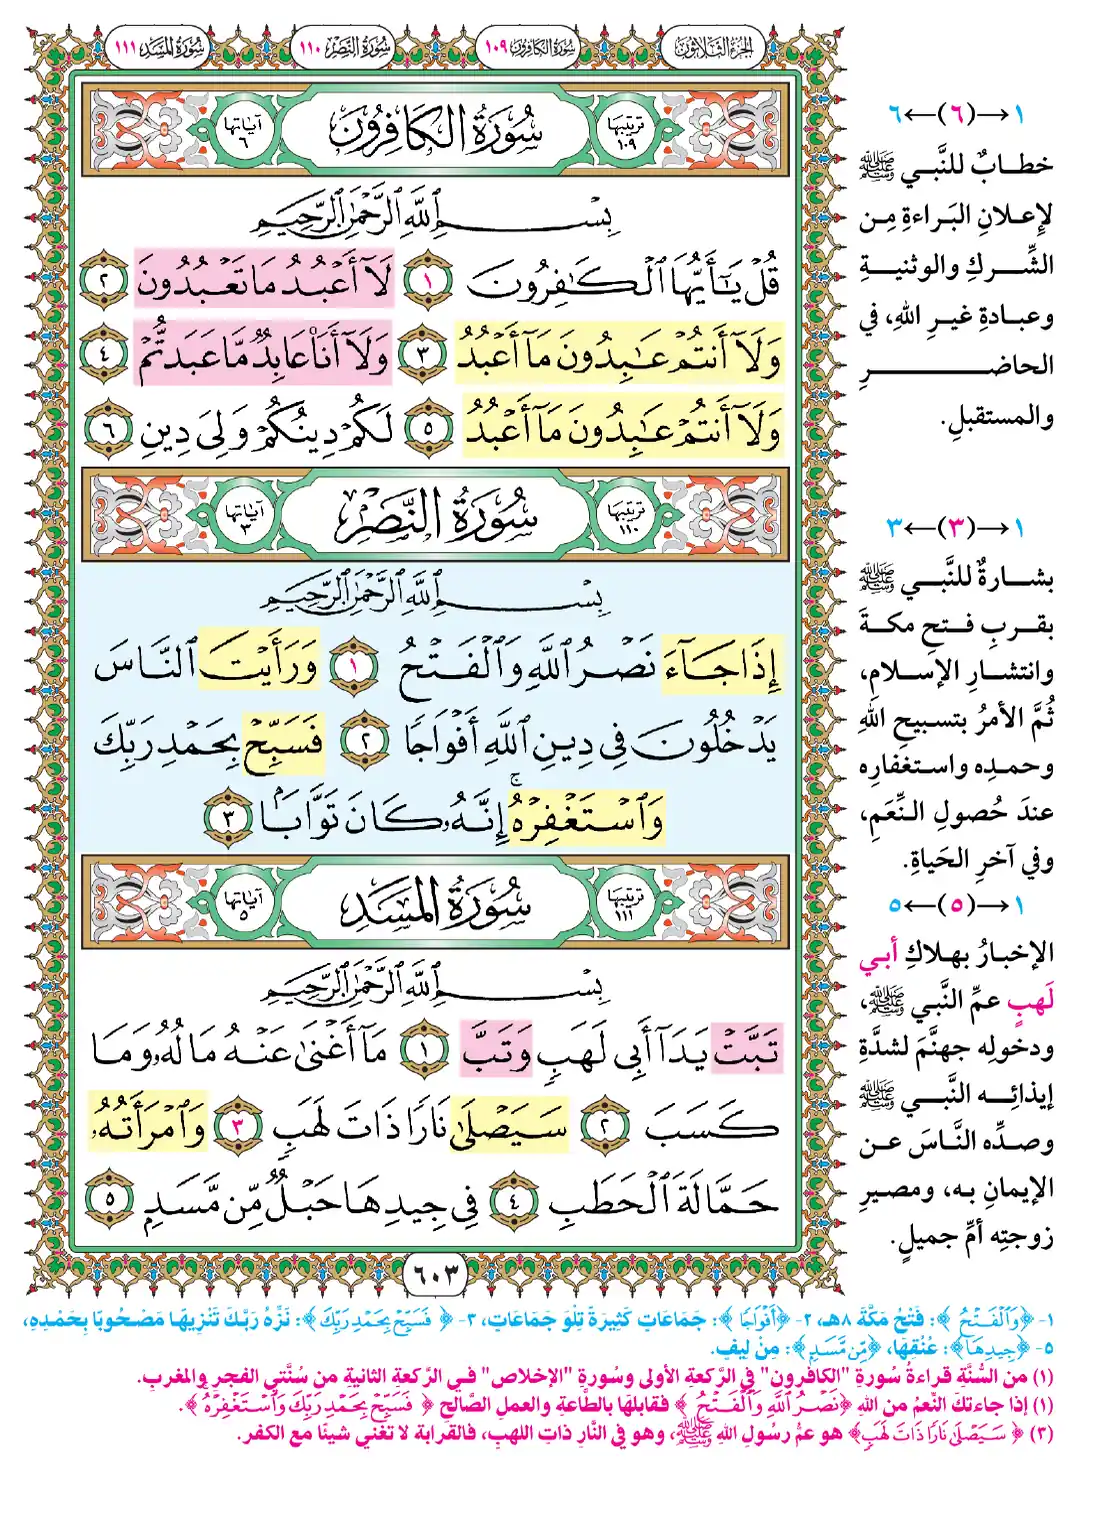 الجزء الثلاثون
سورة الكافرون ١٠٩
سورة النصر ١١٠
سورة المسد ١١١
ترتيبها ١٠٩
سُورَةُ الكَافِرُونَ
آياتها ٦
بِسْمِ ٱللَّهِ ٱلرَّحْمَٰنِ ٱلرَّحِيمِ
قُلْ يَٰٓأَيُّهَا ٱلْكَٰفِرُونَ ١ لَآ أَعْبُدُ مَا تَعْبُدُونَ ٢
وَلَآ أَنتُمْ عَٰبِدُونَ مَآ أَعْبُدُ ٣ وَلَآ أَنَا۠ عَابِدٌ مَّا عَبَدتُّمْ ٤
وَلَآ أَنتُمْ عَٰبِدُونَ مَآ أَعْبُدُ ٥ لَكُمْ دِينُكُمْ وَلِىَ دِينِ ٦
ترتيبها ١١٠
سُورَةُ النَّصْرِ
آياتها ٣
بِسْمِ ٱللَّهِ ٱلرَّحْمَٰنِ ٱلرَّحِيمِ
إِذَا جَآءَ نَصْرُ ٱللَّهِ وَٱلْفَتْحُ ١ وَرَأَيْتَ ٱلنَّاسَ
يَدْخُلُونَ فِى دِينِ ٱللَّهِ أَفْوَاجًا ٢ فَسَبِّحْ بِحَمْدِ رَبِّكَ
وَٱسْتَغْفِرْهُ ۚ إِنَّهُۥ كَانَ تَوَّابًۢا ٣
ترتيبها ١١١
سُورَةُ المَسَدِ
آياتها ٥
بِسْمِ ٱللَّهِ ٱلرَّحْمَٰنِ ٱلرَّحِيمِ
تَبَّتْ يَدَآ أَبِى لَهَبٍ وَتَبَّ ١ مَآ أَغْنَىٰ عَنْهُ مَالُهُۥ وَمَا
كَسَبَ ٢ سَيَصْلَىٰ نَارًا ذَاتَ لَهَبٍ ٣ وَٱمْرَأَتُهُۥ
حَمَّالَةَ ٱلْحَطَبِ ٤ فِى جِيدِهَا حَبْلٌ مِّن مَّسَدٍۭ ٥
٦٠٣
١→(٦)←٦
خطابٌ للنَّبي ﷺ
لإعلانِ البَراءةِ مِن
الشِّركِ والوثنيةِ
وعبادةِ غيرِ اللهِ، في
الحاضرِ
والمستقبلِ.
١→(٣)←٣
بشارةٌ للنَّبي ﷺ
بقربِ فتحِ مكةَ
وانتشارِ الإسلامِ،
ثُمَّ الأمرُ بتسبيحِ اللهِ
وحمدِه واستغفارِه
عندَ حُصولِ النِّعَمِ،
وفي آخرِ الحَياةِ.
١→(٥)←٥
الإخبارُ بهلاكِ أبي
لَهبٍ عمِّ النَّبي ﷺ،
ودخولِه جهنَّمَ لشدَّةِ
إيذائِه النَّبي ﷺ
وصدِّه النَّاسَ عن
الإيمانِ به، ومصيرِ
زوجتِه أمِّ جميلٍ.
١- ﴿وَٱلْفَتْحُ﴾: فَتْحُ مَكَّةَ ٨هـ، ٢- ﴿أَفْوَاجًا﴾: جَمَاعَاتٍ كَثِيرَةً تِلْوَ جَمَاعَاتٍ، ٣- ﴿فَسَبِّحْ بِحَمْدِ رَبِّكَ﴾: نَزِّهْ رَبَّكَ تَنْزِيهًا مَصْحُوبًا بِحَمْدِهِ،
٥- ﴿جِيدِهَا﴾: عُنُقِهَا، ﴿مِّن مَّسَدٍ﴾: مِنْ لِيفٍ.
(١) من السُّنَّةِ قراءةُ سُورةِ "الكافرون" في الرَّكعةِ الأولى وسُورةِ "الإخلاص" في الرَّكعةِ الثانيةِ من سُنَّتي الفجرِ والمغربِ.
(١) إذا جاءتكَ النِّعمُ من اللهِ ﴿نَصْرُ ٱللَّهِ وَٱلْفَتْحُ﴾ فقابلهَا بالطَّاعةِ والعملِ الصَّالحِ ﴿فَسَبِّحْ بِحَمْدِ رَبِّكَ وَٱسْتَغْفِرْهُ﴾.
(٣) ﴿سَيَصْلَىٰ نَارًا ذَاتَ لَهَبٍ﴾ هو عمُّ رسُولِ اللهِ ﷺ، وهو في النَّارِ ذاتِ اللهبِ، فالقرابة لا تغني شيئًا مع الكفر.